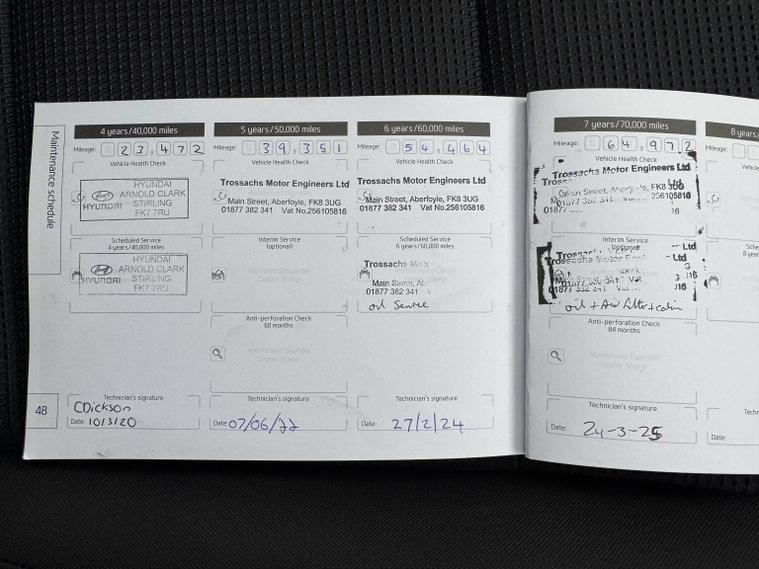 Maintenance schedule
48
4 years/40,000 miles
Mileage: 23,472
Vehicle Health Check
HYUNDAI
HYUNDAI
ARNOLD CLARK
STIRLING
FK7 7RU
Scheduled Service
4 years/40,000 miles
HYUNDAI
HYUNDAI
ARNOLD CLARK
STIRLING
FK7 7RU
Technician's signature
CDickson
Date: 10/3/20
5 years/50,000 miles
Mileage: 39,351
Vehicle Health Check
Trossachs Motor Engineers Ltd
Main Street, Aberfoyle, FK8 3UG
01877 382 341 Vat No.256105816
Interim Service
(optional)
Authorised Hyundai
Dealer Stamp
Anti-perforation Check
60 months
Authorised Hyundai
Dealer Stamp
Technician's signature
Date: 07/06/22
6 years/60,000 miles
Mileage: 54,464
Vehicle Health Check
Trossachs Motor Engineers Ltd
Main Street, Aberfoyle, FK8 3UG
01877 382 341 Vat No.256105816
Scheduled Service
6 years/60,000 miles
Trossachs
Main Street,
01877 382 341
oil Service
Technician's signature
Date: 27/2/24
7 years/70,000 miles
Mileage: 64,972
Vehicle Health Check
Trossachs Motor Engineers Ltd
Street, FK8 3UG
01877 256105816
16
Interim Service
(optional)
Ltd
Trossachs Motor Ltd
01877 382 341
oil + Air filter + cabin
Anti-perforation Check
84 months
Authorised Hyundai
Dealer Stamp
Technician's signature
Date: 24-3-25
8 years
Date: